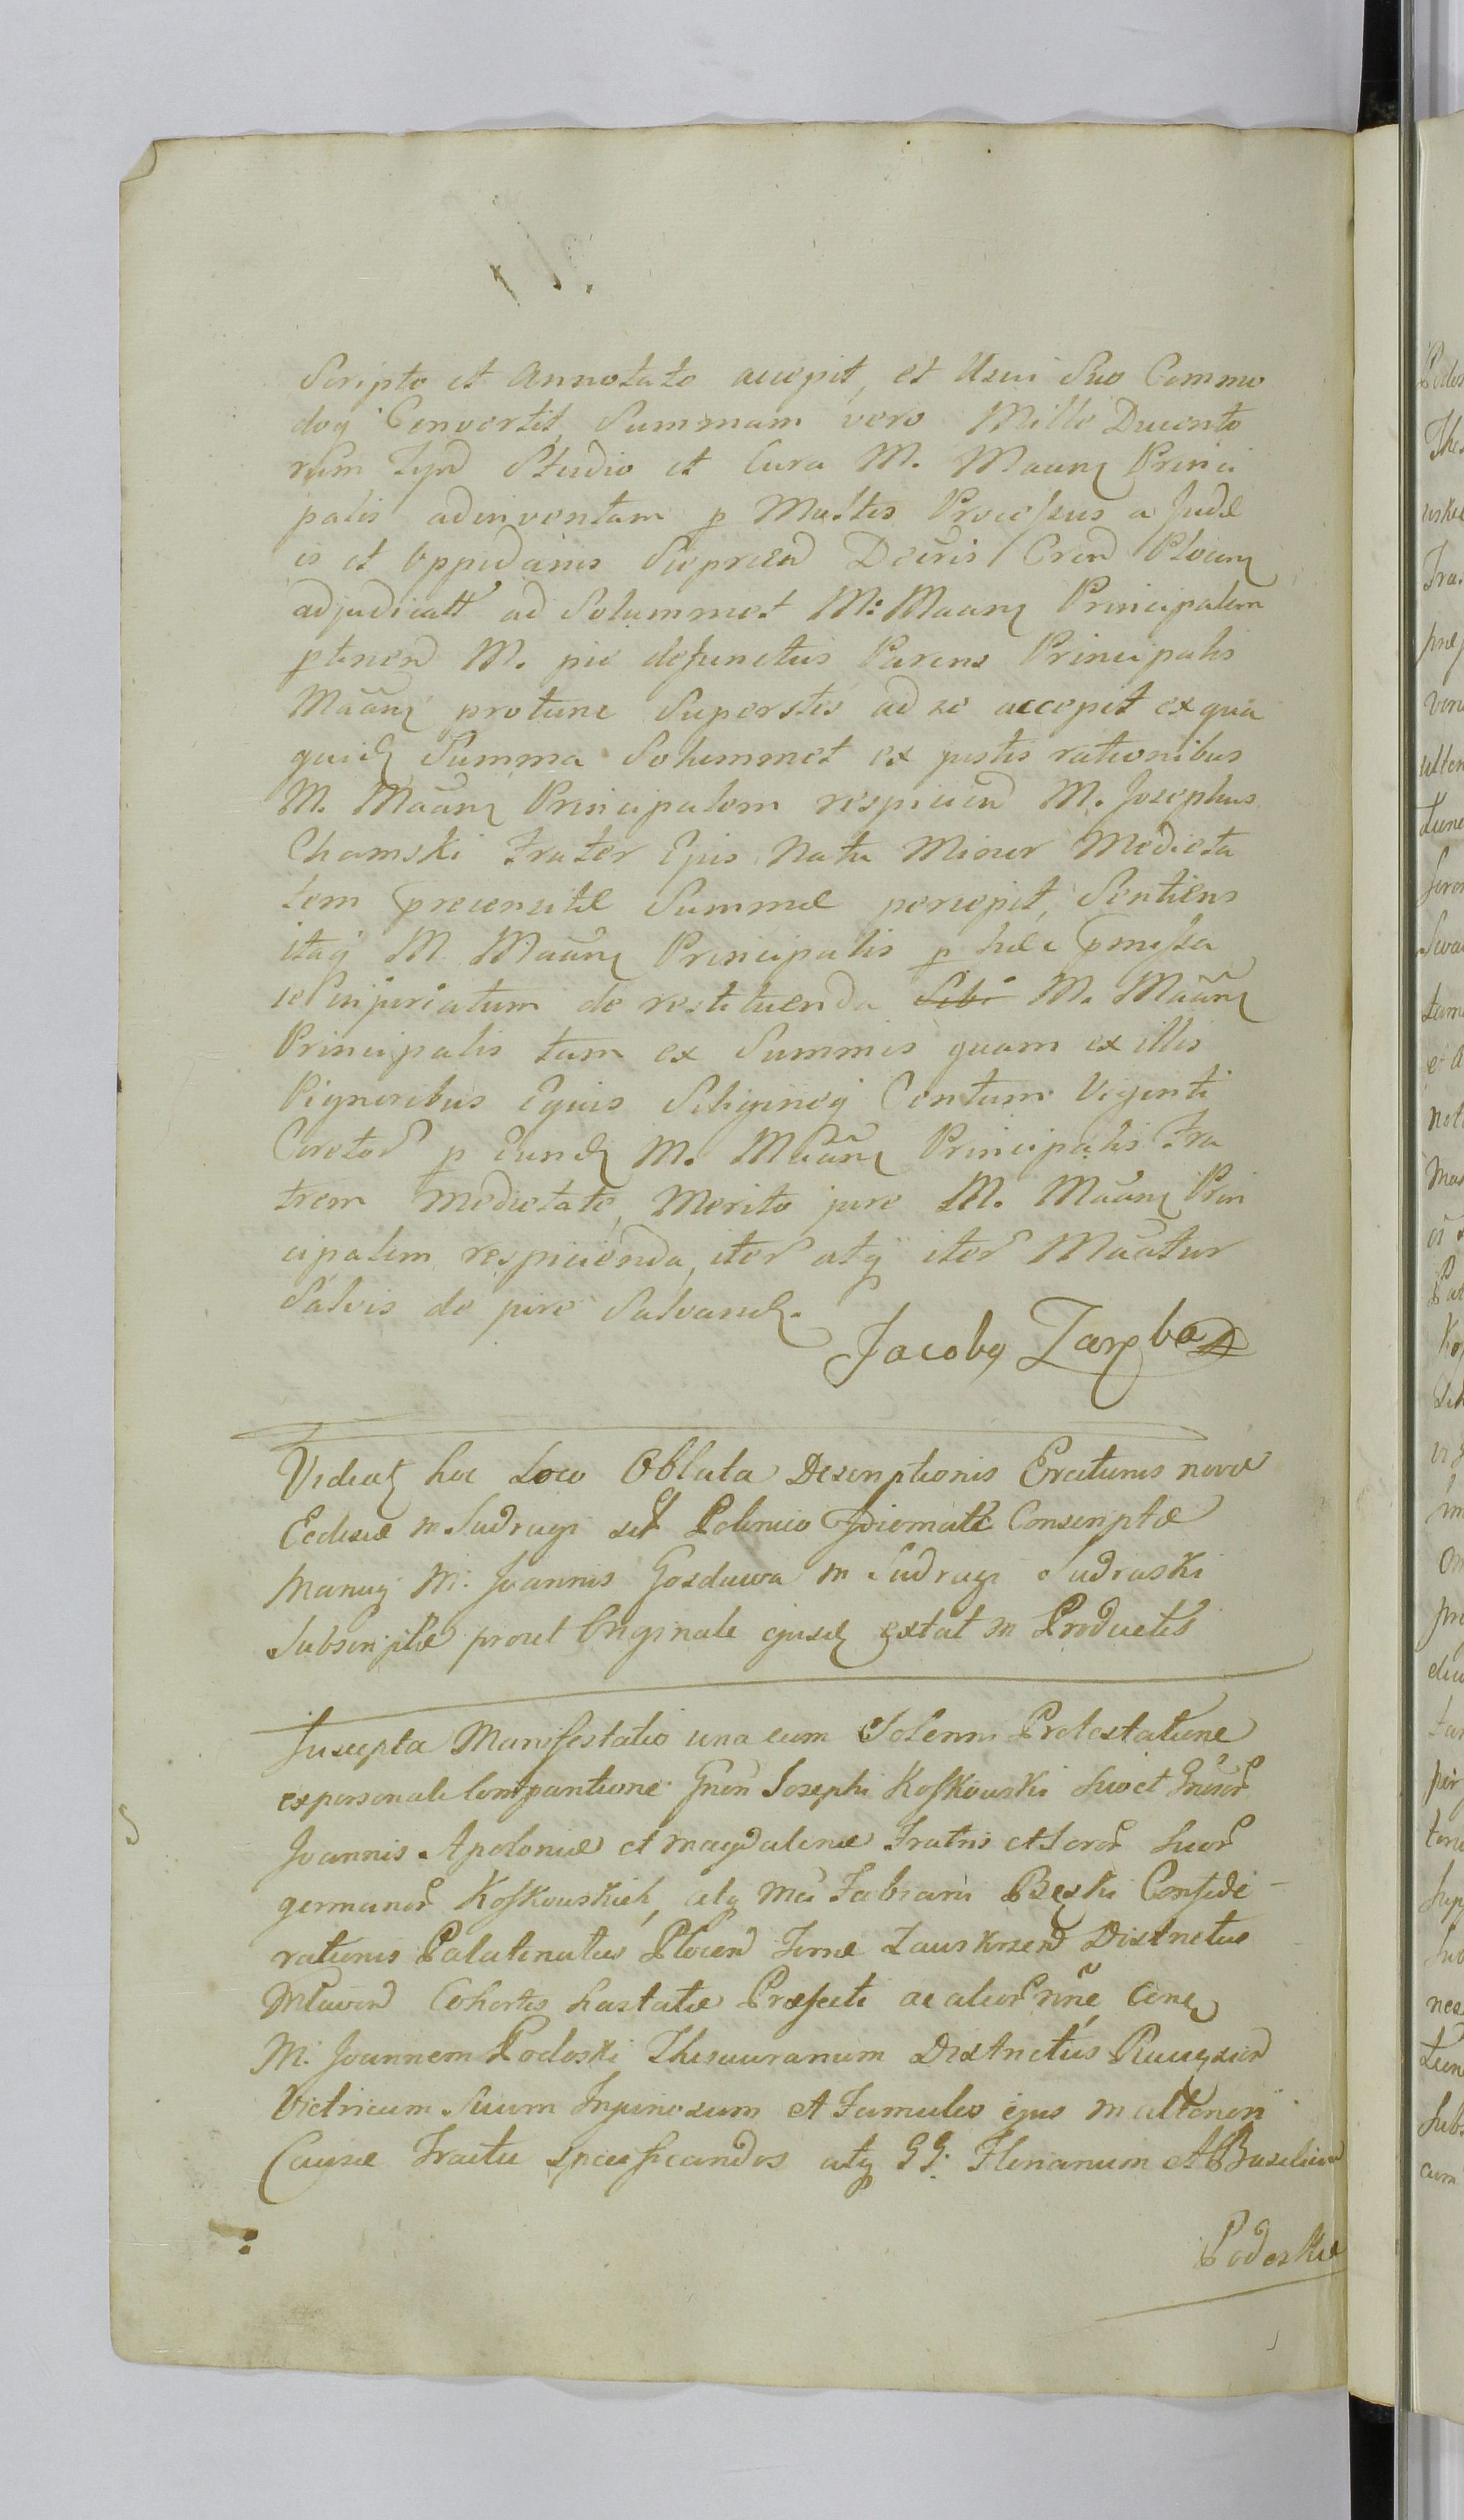 Scripto et Annotato accepit, et Usui Suo Commo
doq Convertit, Summam vero Mille Ducento
rum Tynf Studio et Cura M. Maanς Princi
palis adinventam p Multos Processus a Judæ
is et Oppidanis Sieprcen Decris Cren Plocen
adjudicatt ad Solummet M: Maanς Principalem
ptinen M. pie defunctus Parens Principalis
Maanς protunc Superstes ad se accepit ex qua
quidς Summa Solummet ex justis rationibus
M. Maanς Principalem respicien M. Josephus
Chamski Frater Ejus Natu Minor Medieta
tem præcensitæ Summæ percepit, Sentiens
itaq M. Maanς Principalis p hæc pmissa
se injuriatum de restituenda Sibi M. Maanς
Principalis tam ex Summis quam ex illis
Pignoribus Equis Siligineq Centum Viginti
Coretor p Eundς M. Maanς Principalis Fra
trem Medietate, Merito jure M. Maanς Prin
cipalem respicienda, iter atq iter Maatur
Salvis de jure Salvandς.
Jacobq Zaręba
Videatς hoc Loco Oblata Descriptionis Erectionis novæ
Eccliæ in Sudragi sit Polonico Idiomate Conscriptæ
Manuq M. Joannis Gozdawa in Sudragi Sudraski
Subscriptæ prout Originale ejusdς extat in Productis
Suscepta Manifestatio una cum Solenni Protestatione
ex personali Compantione Gnen Josephi Koskowski Suo et Gnosor
Joannis Apoloniæ et Magdalenæ Fratris et Soror Suor
germanor Koskowskich, atq Mci Fabiani Bęski Confæde-
rationis Palatinatus Plocen Terræ Zawkrzen Districtus
Mlaven Cohortis hastatæ Præfecti ac alior nne Cone
M. Joannem Podoski Thesaurarium Districtus Raciązien
Vitricum Suum Injuriosum et Famulos ejus in altenori
Causæ Tractu specificandos atq GG. Florianum et Basilium
Podoskie